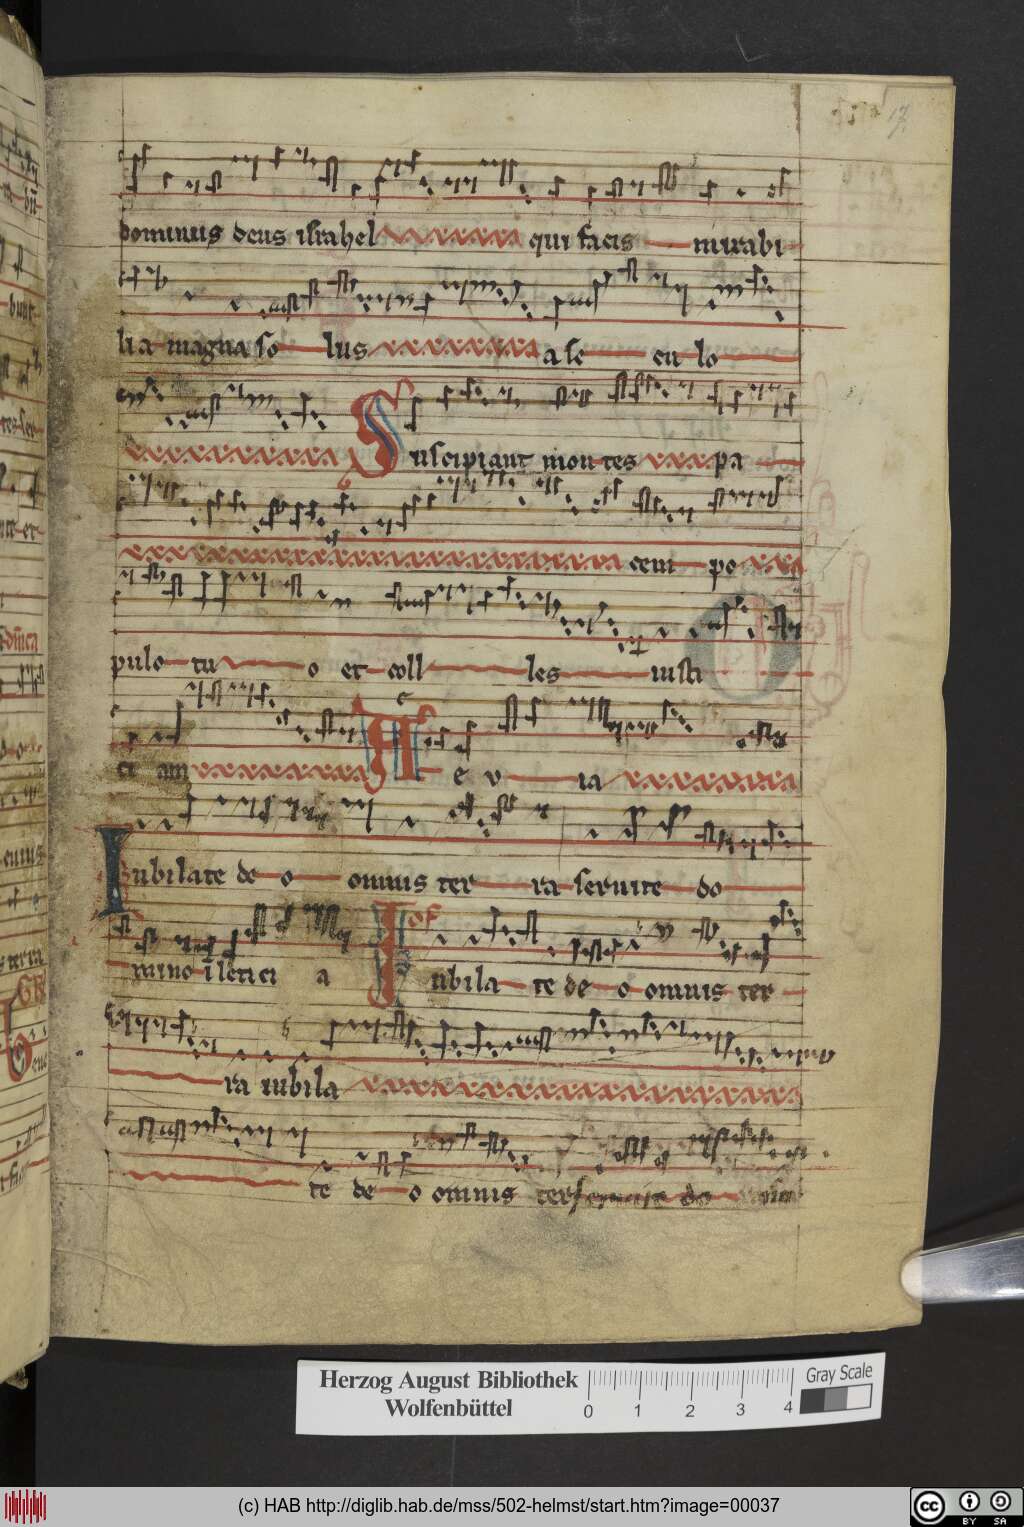 17
dominus deus israhel qui facis mirabi
lia magna so lus a se cu lo
Suscipiant montes pa
cem po
pulo tu o et coll les iusti
ci am A e v ia
Iubilate de o omnis ter ra seruite do
mino in leticia Of Iubila te de o omnis ter
ra iubila
te de o omnis ter seruite do
Herzog August Bibliothek
Wolfenbüttel
0 1 2 3 4
Gray Scale
(c) HAB http://diglib.hab.de/mss/502-helmst/start.htm?image=00037
cc BY SA